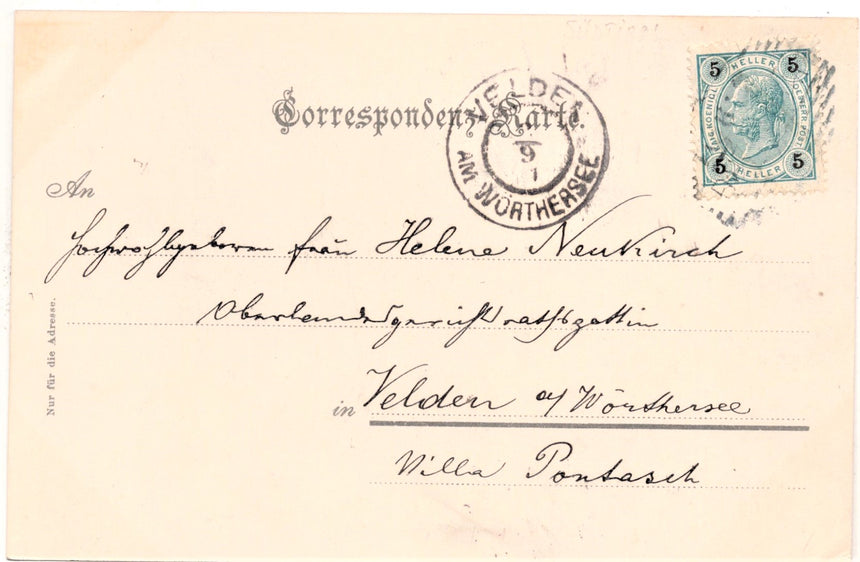 Correspondenz-Karte.
VELDEN
9
AM WÖRTHERSEE
5 HELLER 5
KAIS. KOENIGL. OESTERR. POST
5 HELLER 5
An
Hochwohlgeboren Frau Helene Neukirch
Oberlandesgerichtsrathsgattin
in Velden a/ Wörthersee
Villa Pontasch
Nur für die Adresse.